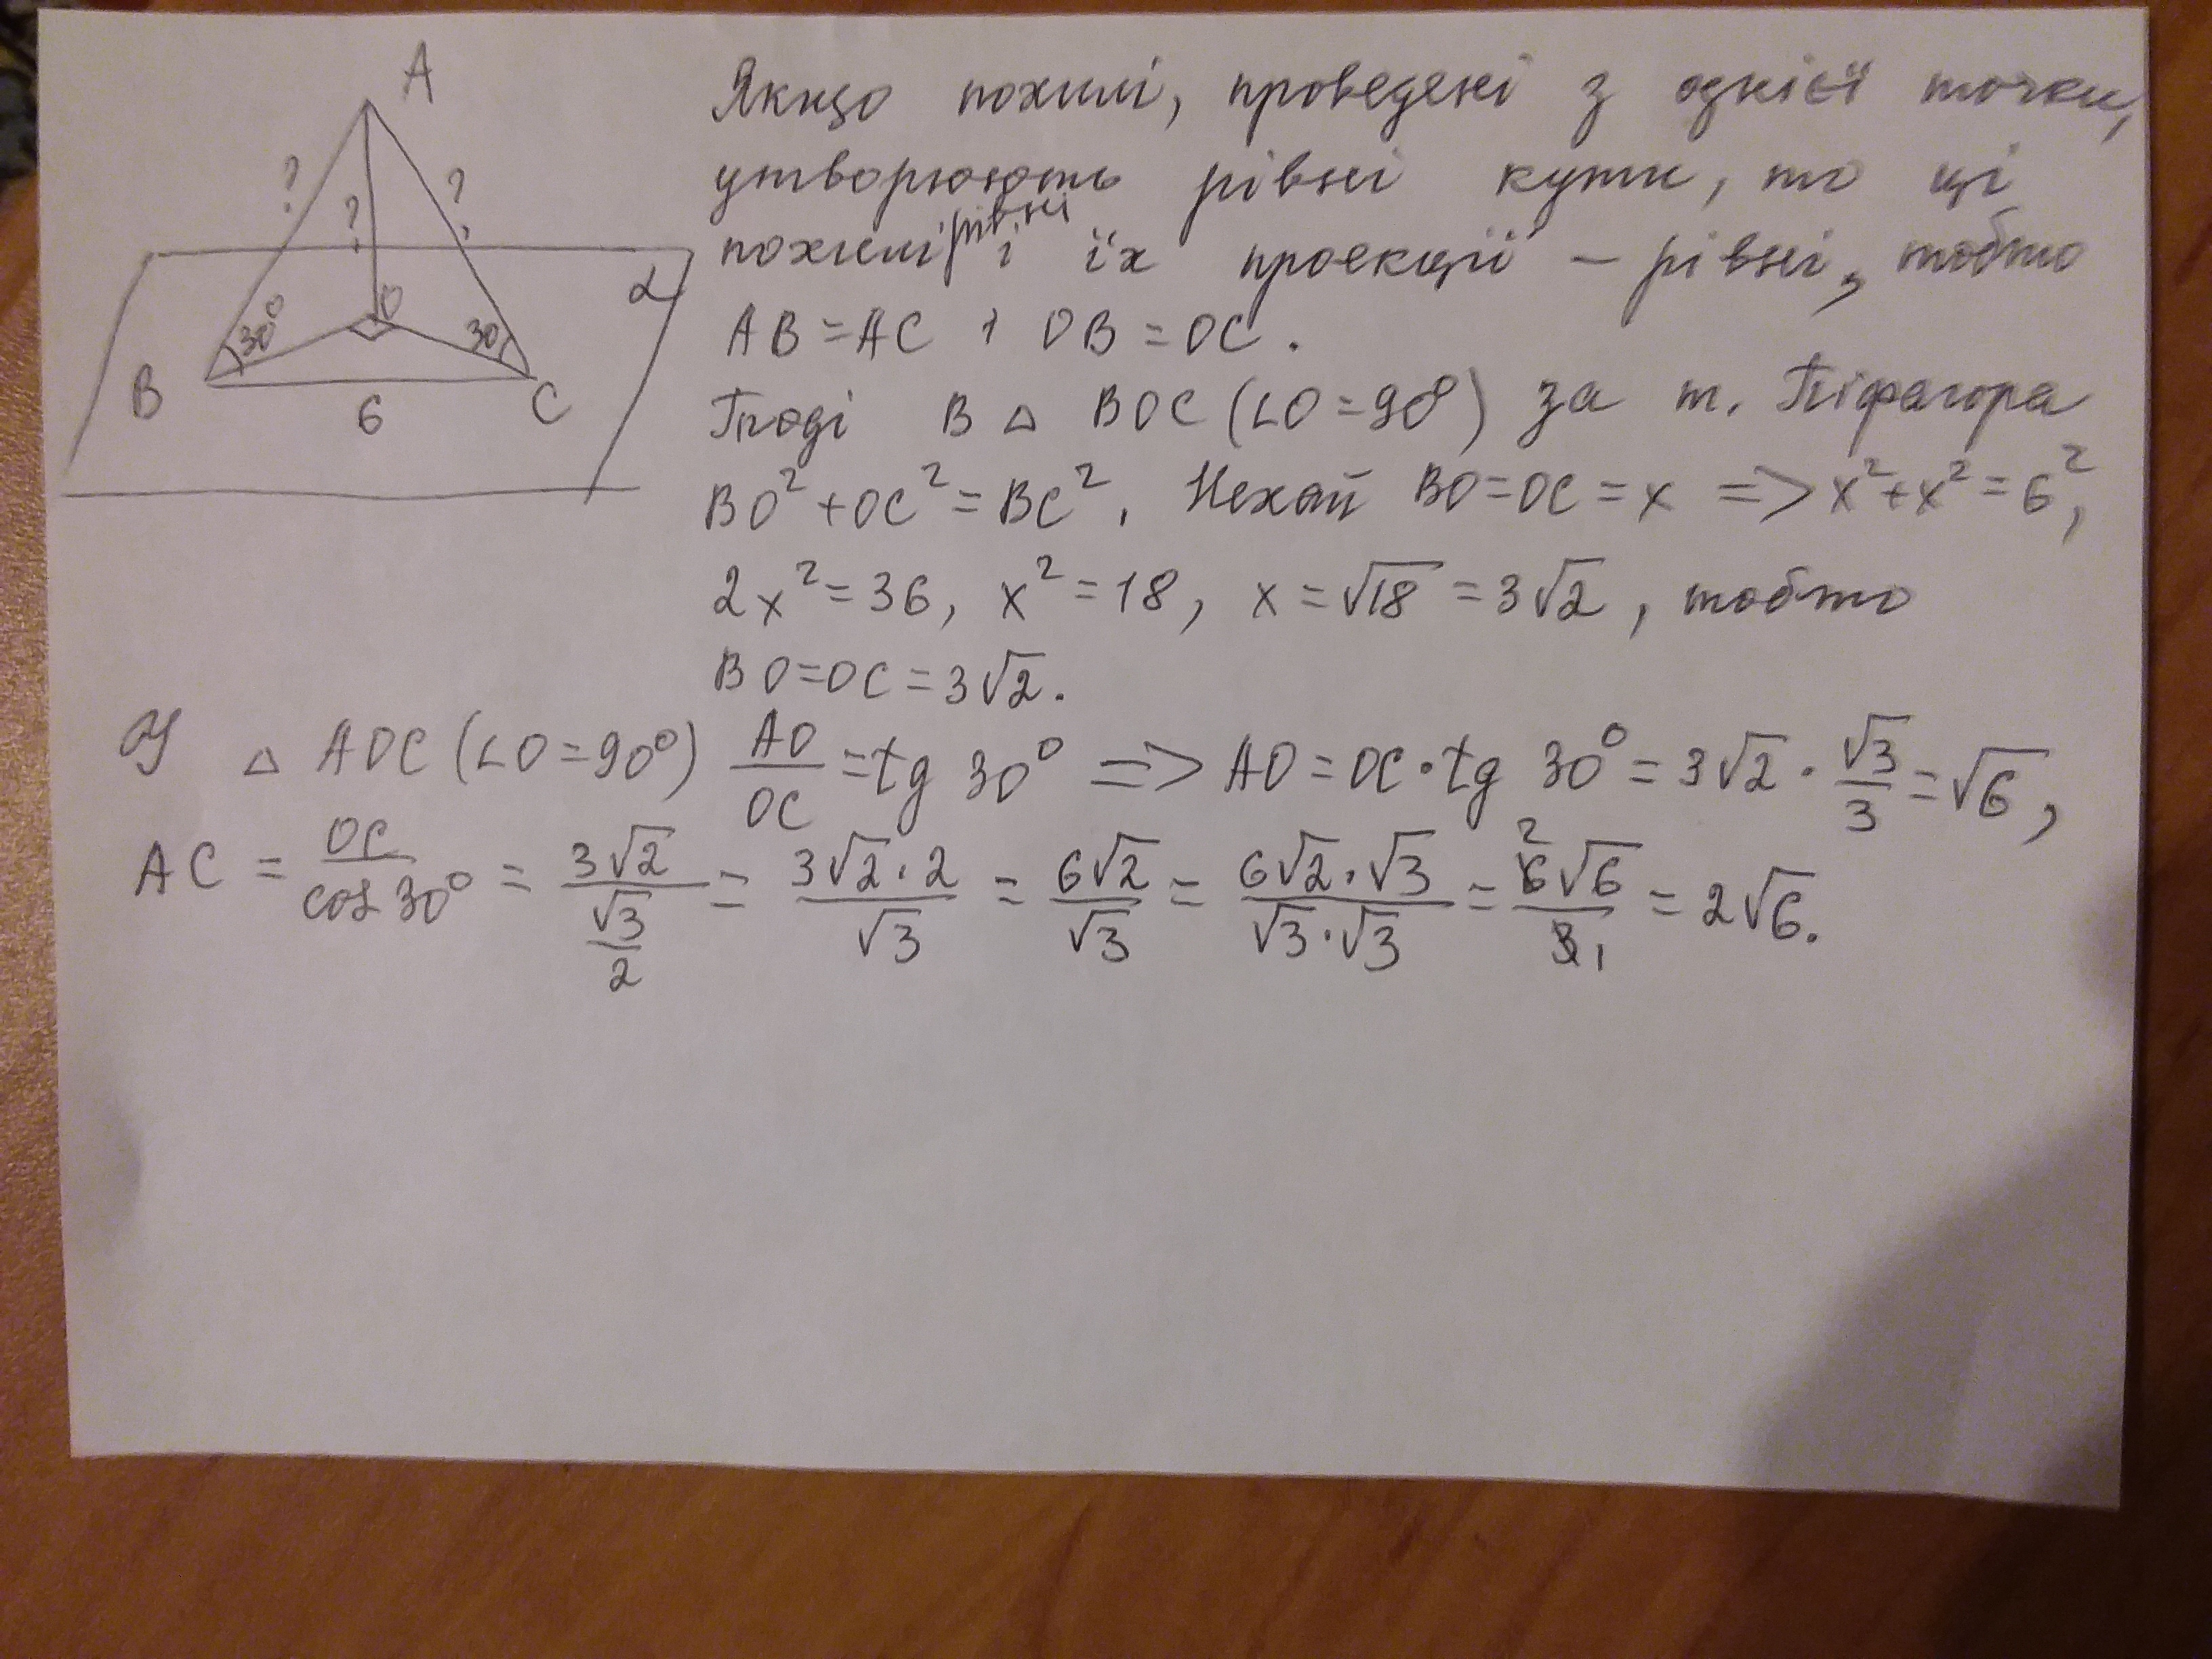 A
? ? ?
α
O
30° 30
B C
6
Якщо похилі, проведені з однієї точки,
утворюють рівні кути, то ці
похилі рівні і їх проекції – рівні, тобто
AB = AC і OB = OC.
Тоді в △ BOC (∠O = 90°) за т. Піфагора
BO² + OC² = BC². Нехай BO = OC = x => x² + x² = 6²,
2x² = 36, x² = 18, x = √18 = 3√2, тобто
BO = OC = 3√2.
У △ AOC (∠O = 90°) AO/OC = tg 30° => AO = OC · tg 30° = 3√2 · √3/3 = √6,
AC = OC/cos 30° = 3√2/(√3/2) = 3√2·2/√3 = 6√2/√3 = 6√2·√3/√3·√3 = 2 6√6/3 1 = 2√6.